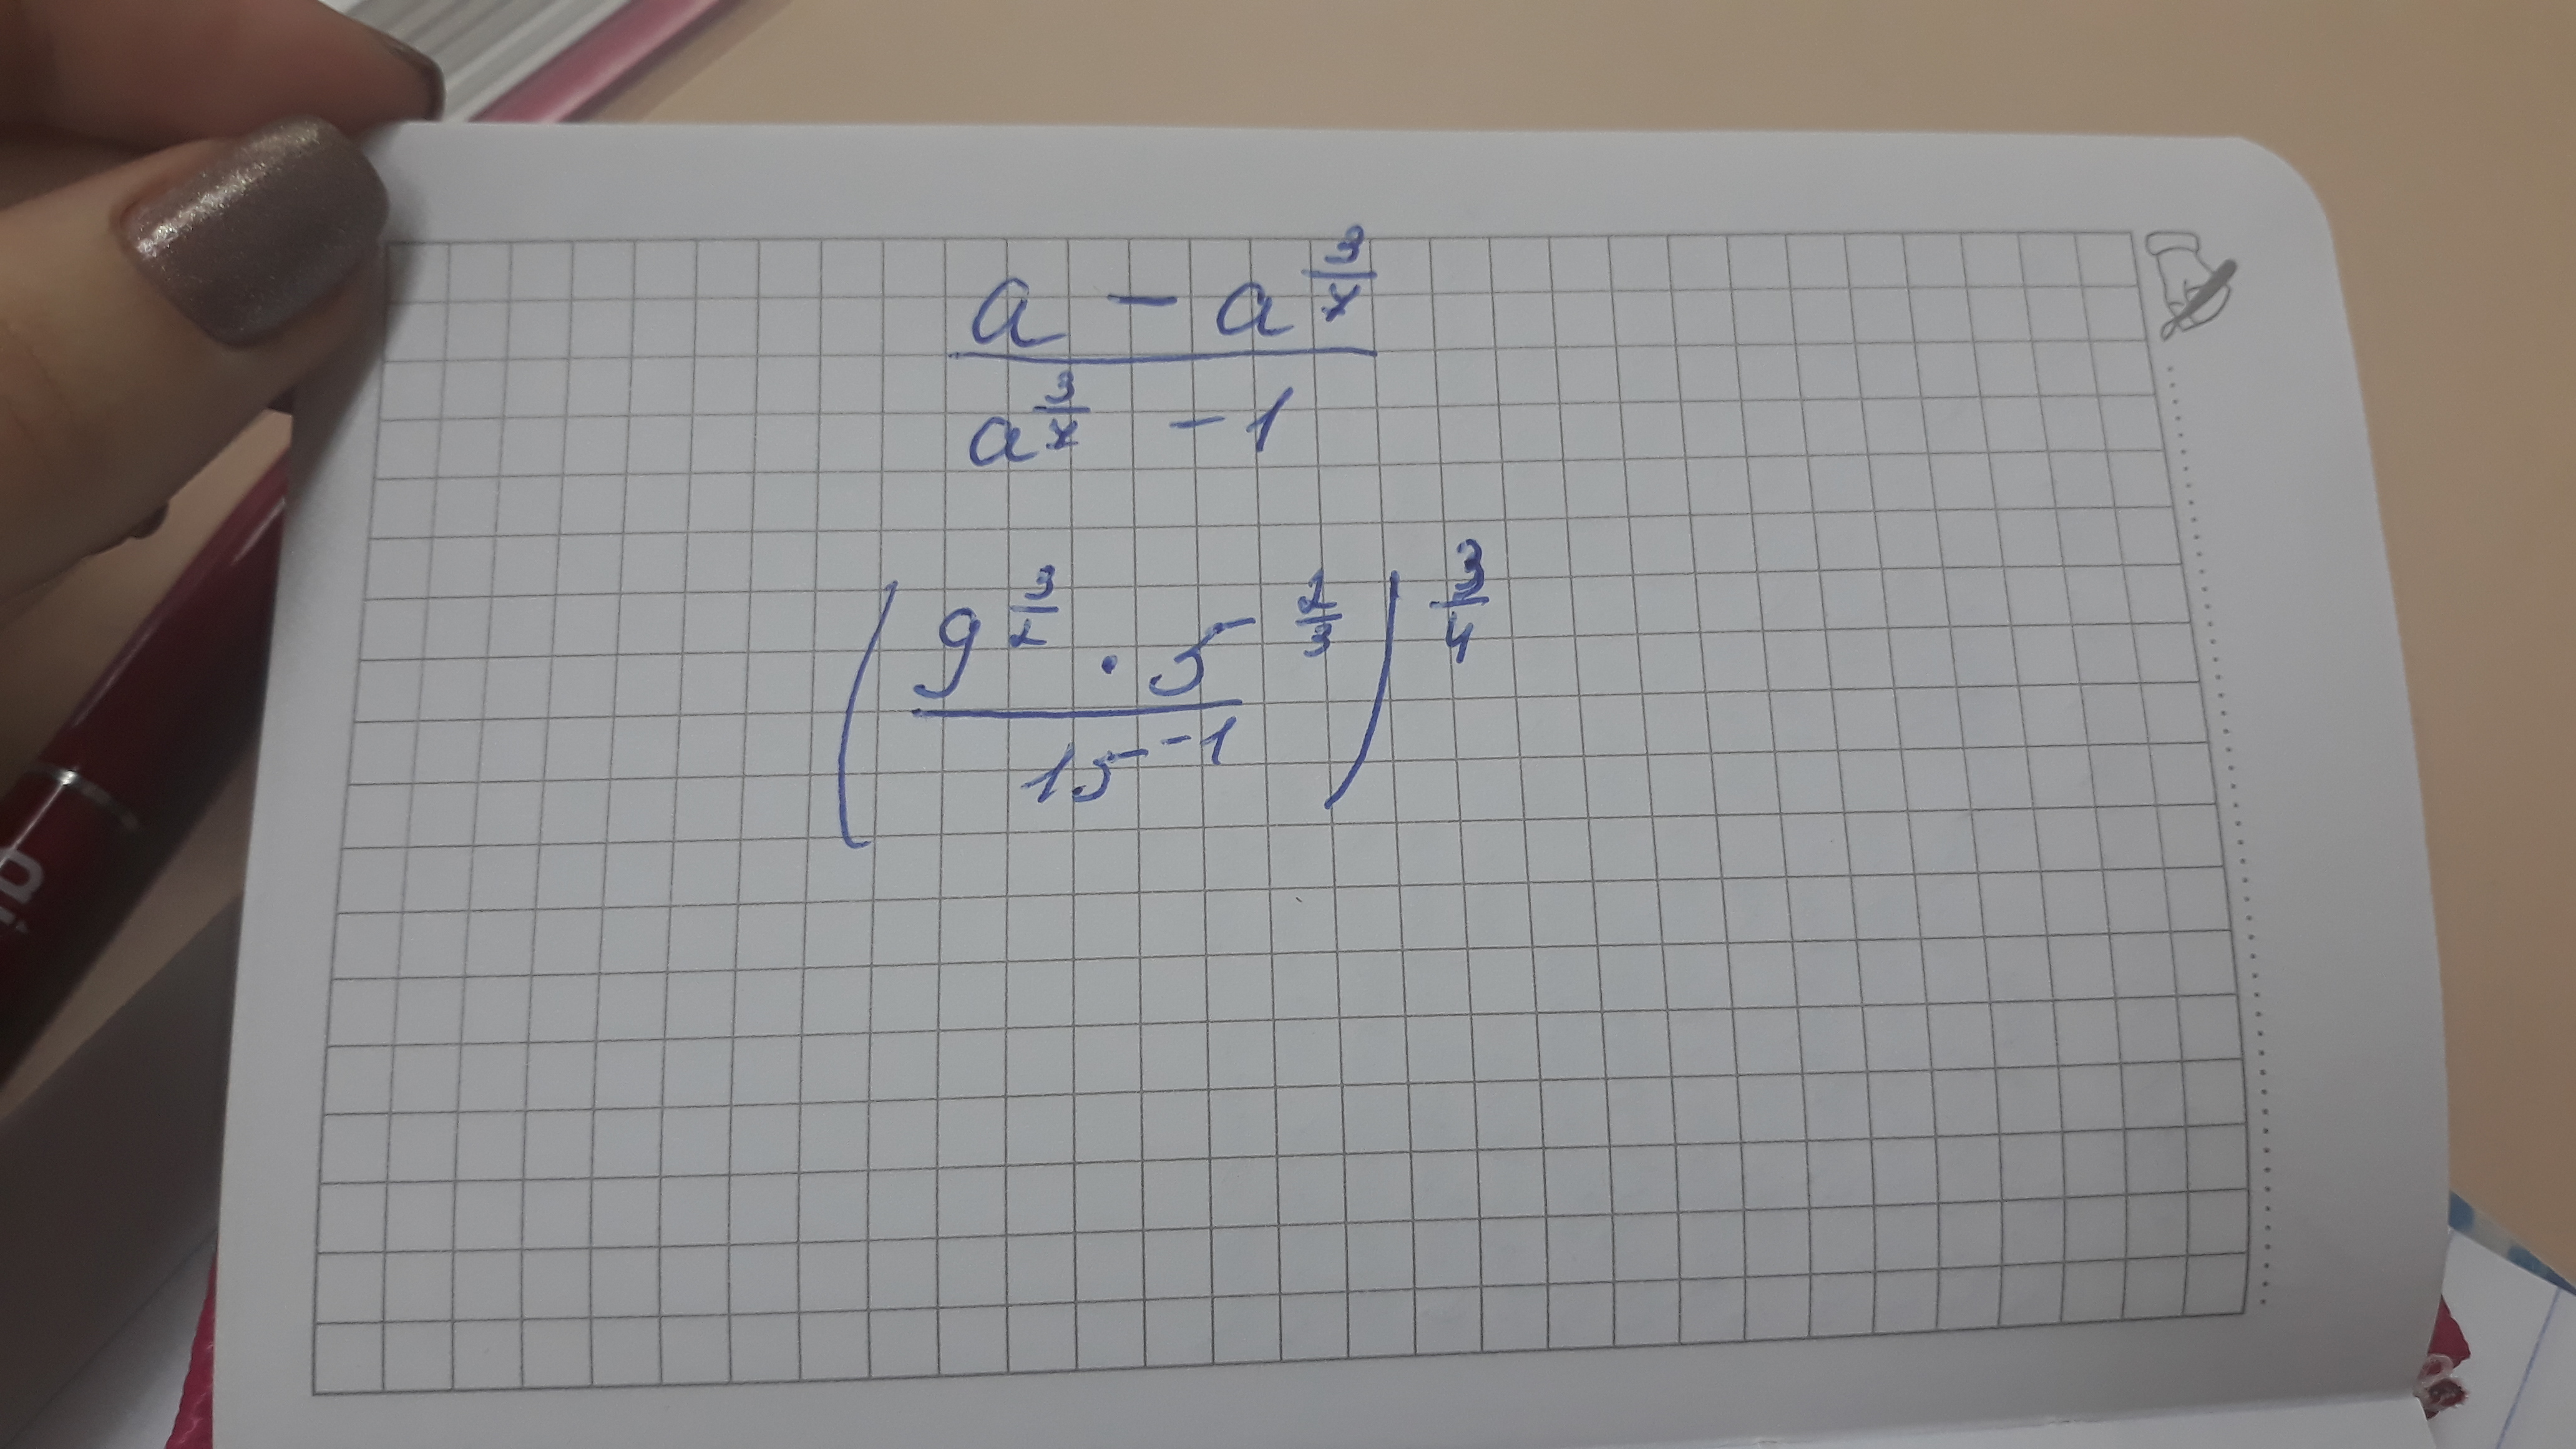 a - a^(3/x)
a^(3/x) - 1
(9^(3/2) · 5^(2/3) / 15^-1)^(3/4)